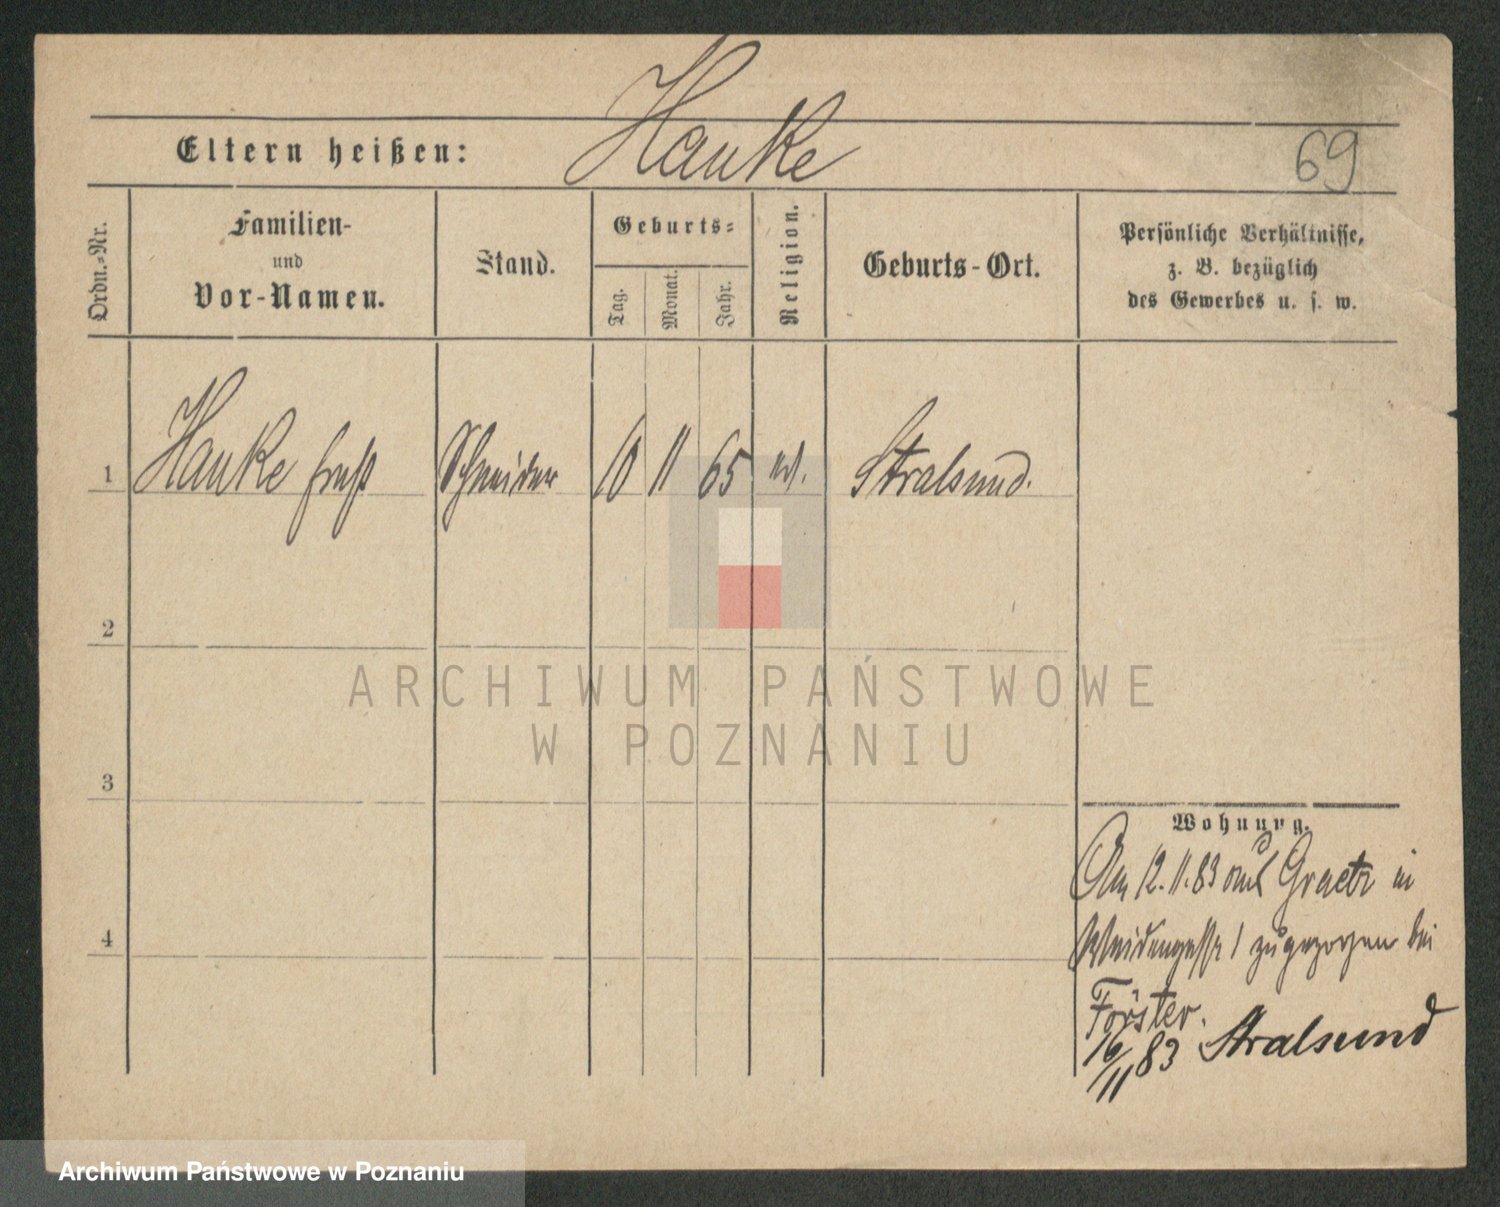 Hanke
Eltern heißen:
69
Ordn.-Nr.
Familien-
und
Vor-Namen.
Stand.
Geburts-
Tag.
Monat.
Jahr.
Religion.
Geburts-Ort.
Persönliche Verhältnisse,
z. B. bezüglich
des Gewerbes u. s. w.
1 Hanke Schneider 10 11 65 Stralsund.
2
3
4
Wohnung.
Am 12.11.83 aus Graetz in
Weidengasse 1 zugezogen bei
Förster.
16/11 83 Stralsund
ARCHIWUM PAŃSTWOWE
W POZNANIU
Archiwum Państwowe w Poznaniu